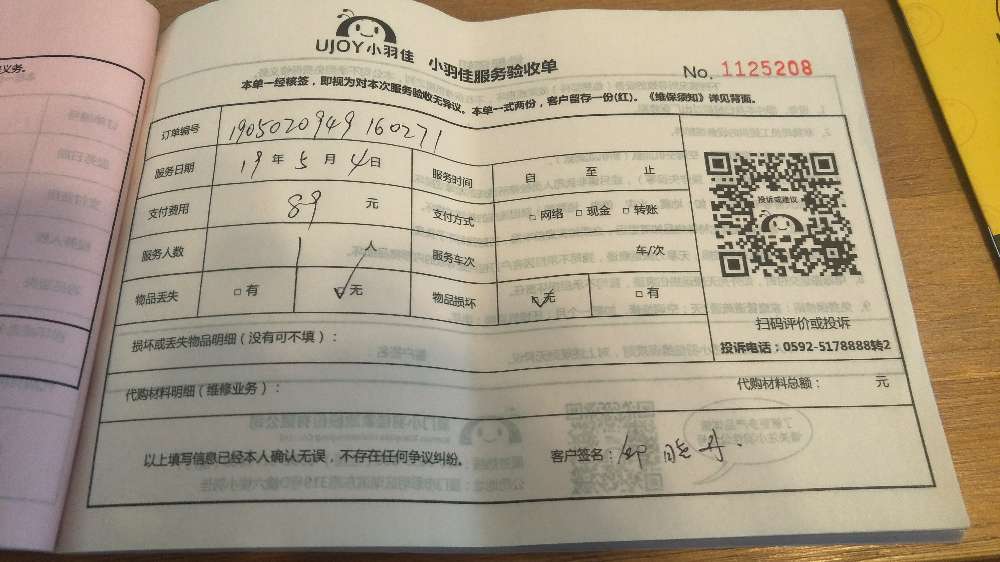 UJOY小羽佳 小羽佳服务验收单
No. 1125208
本单一经核签，即视为对本次服务验收无异议。本单一式两份，客户留存一份(红)。《维保须知》详见背面。
订单编号 1905020949160271
服务日期 19年5月4日 服务时间 自 至 止
支付费用 89 元 支付方式 □网络 □现金 □转账
服务人数 1 人 服务车次 车/次
物品丢失 □有 ☑无 物品损坏 ☑无 □有
投诉或建议
扫码评价或投诉
投诉电话：0592-5178888转2
损坏或丢失物品明细（没有可不填）：
代购材料明细（维修业务）： 代购材料总额： 元
以上填写信息已经本人确认无误，不存在任何争议纠纷。 客户签名：